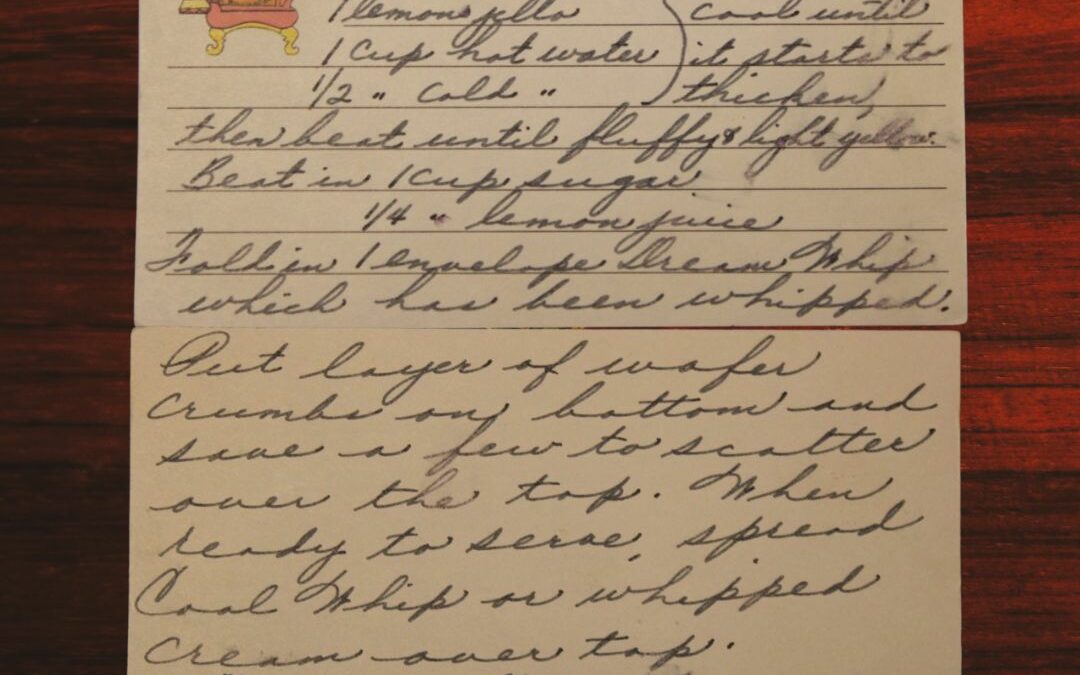 1 lemon jello cool until
1 cup hot water it starts to
1/2 " cold " thicken,
then beat until fluffy & light yellow.
Beat in 1 cup sugar
1/4 " lemon juice
Fold in 1 envelope Dream Whip
which has been whipped.
Put layer of wafer
crumbs on bottom and
save a few to scatter
over the top. When
ready to serve, spread
Cool Whip or whipped
cream over top.